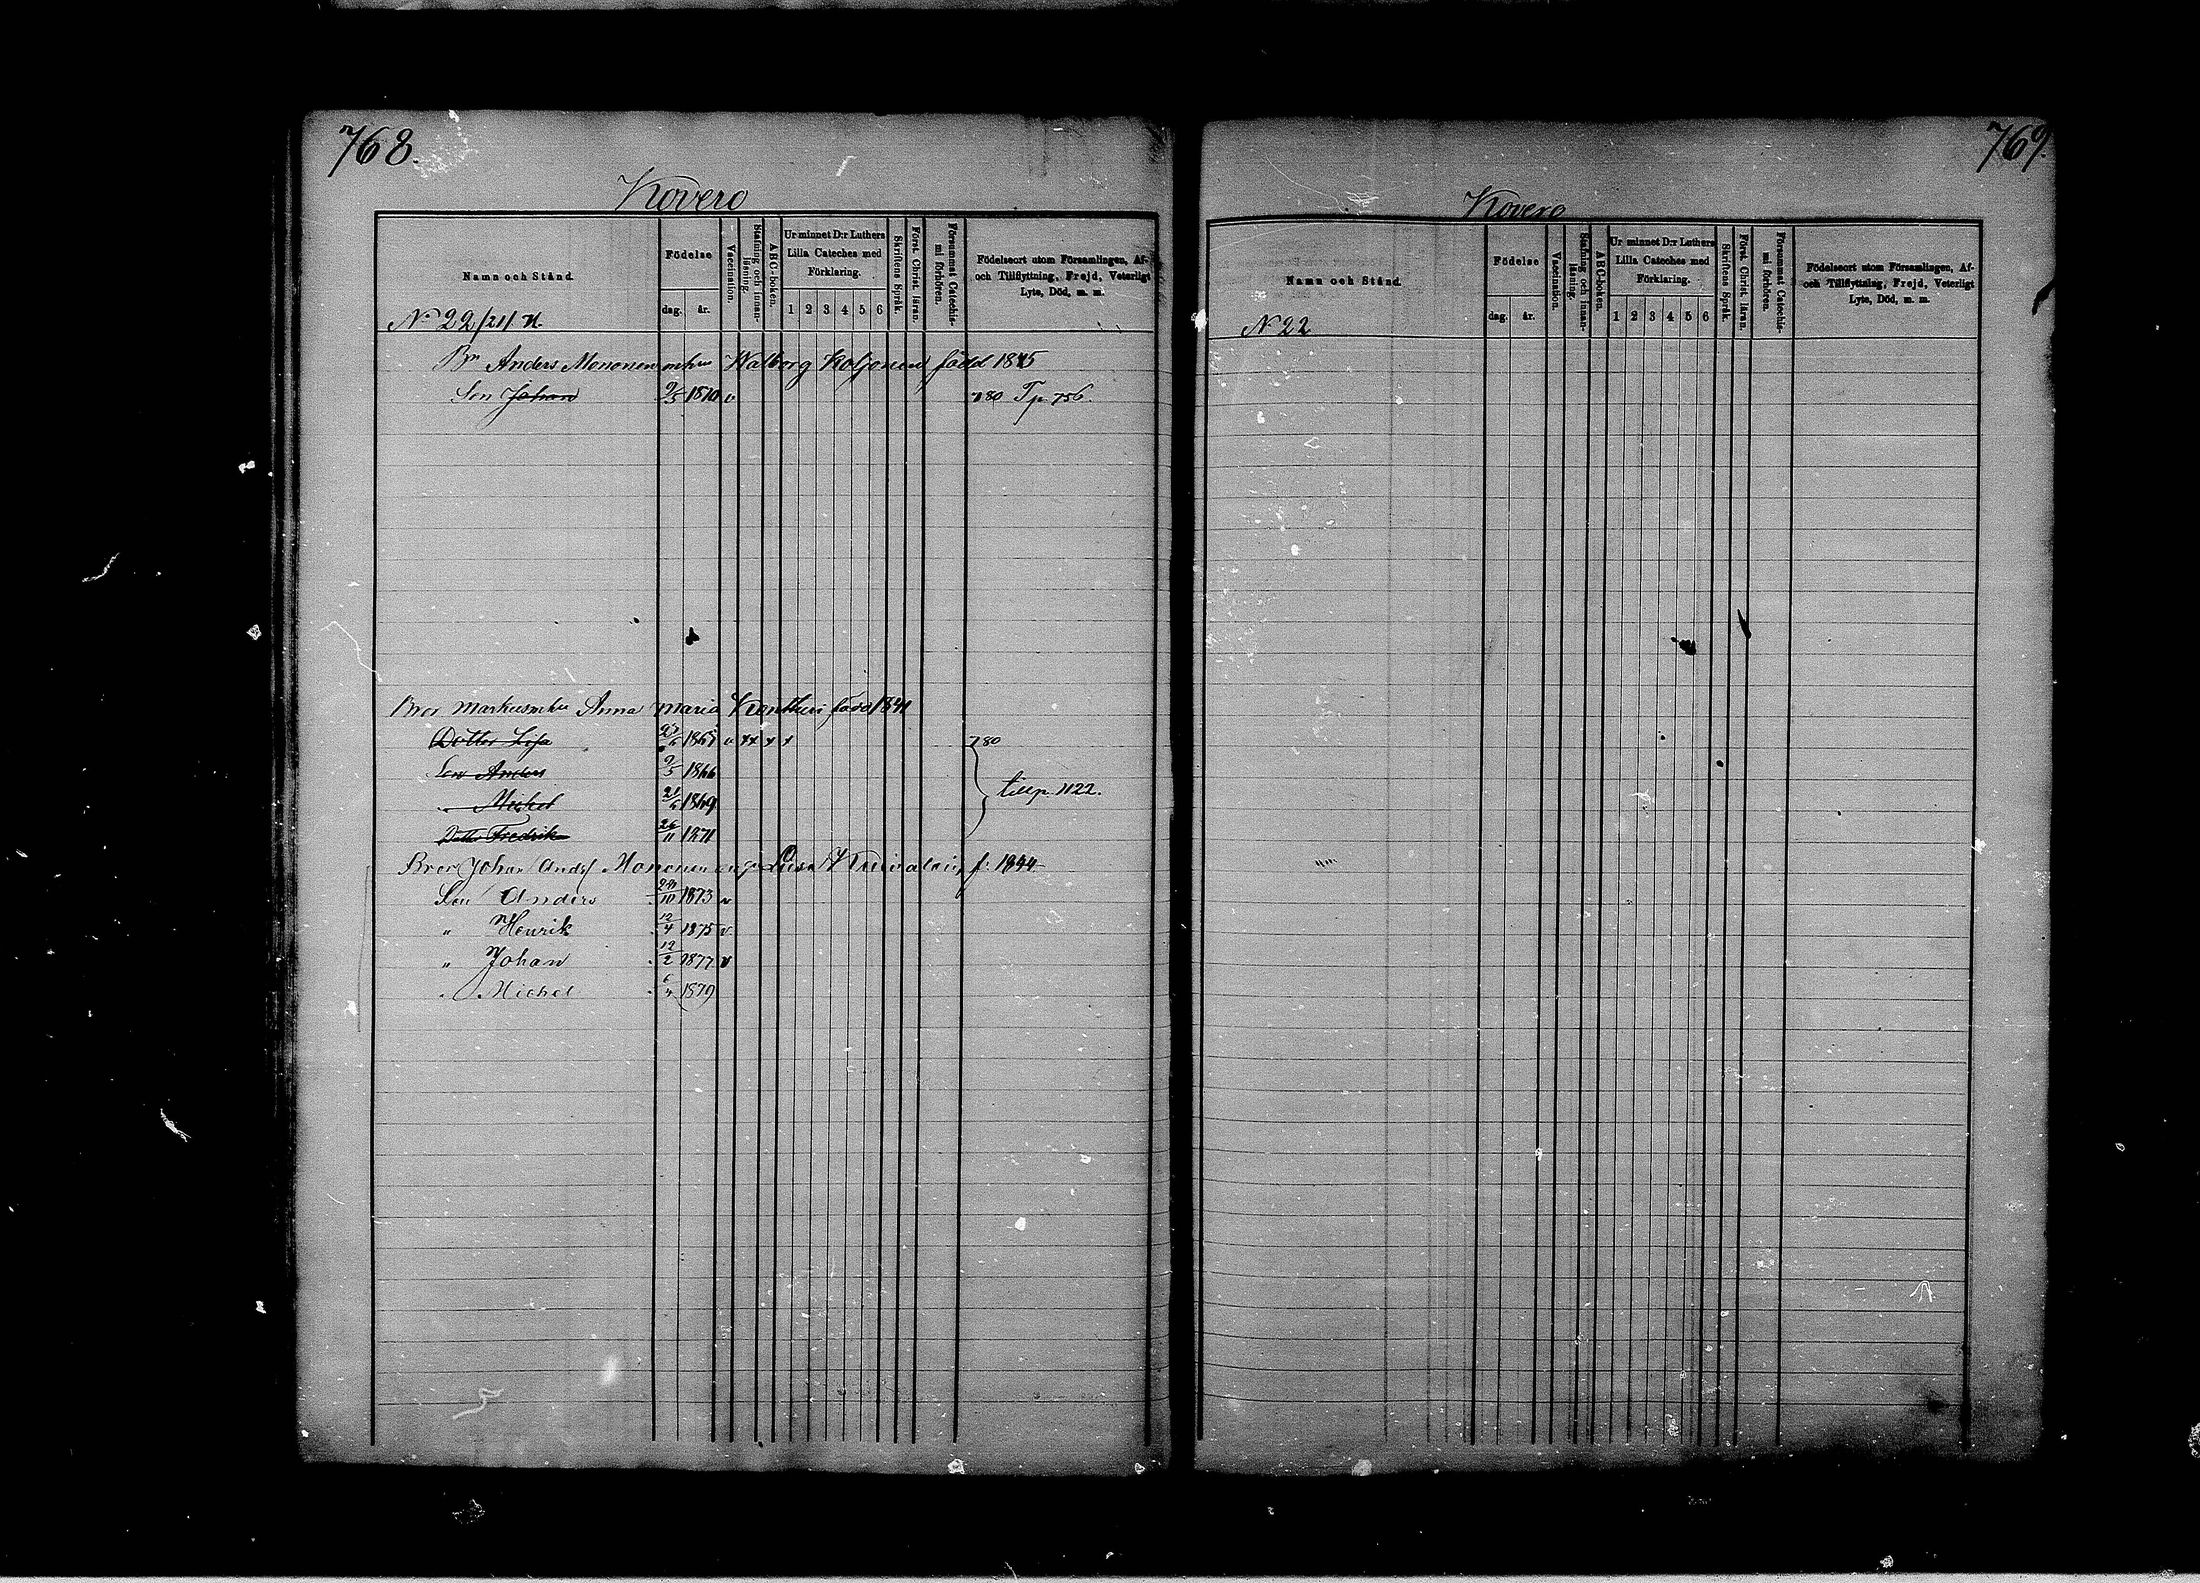 768.
Kovero
Namn och Stånd.
Födelse
dag.
år.
Vaccination.
Stafning och innan-
läsning.
ABC-boken.
Ur minnet D:r Luthers
Lilla Cateches med
Förklaring.
1 2 3 4 5 6
Skriftens Språk.
Först. Christ. läran.
Försummat Catechis-
mi förhören.
Födelseort utom Församlingen, Af-
och Tillflyttning, Frejd, Veterligt
Lyte, Död, m. m.
No 22 /21/
Br Anders Mononen Walborg Koljonen född 1845
Son Johan 9/5 1870 v 80 Tp 756.
Bror Markus Anna Maria född 1841
Dotter Lisa 80
Son Anders 9/5 1866
" Michel 1869 till p. 1122.
Dotter Fredrika 26/11 1871
Bror Johan Mononen f. 1844
Son Anders 1873 v
" Henrik 12/4 1875 v.
" Johan 12/2 1877 v
" Michel 6/4 1879
769.
Kovero
Namn och Stånd.
Födelse
dag.
år.
Vaccination.
Stafning och innan-
läsning.
ABC-boken.
Ur minnet D:r Luthers
Lilla Cateches med
Förklaring.
1 2 3 4 5 6
Skriftens Språk.
Först. Christ. läran.
Försummat Catechis-
mi förhören.
Födelseort utom Församlingen, Af-
och Tillflyttning, Frejd, Veterligt
Lyte, Död, m. m.
No 22